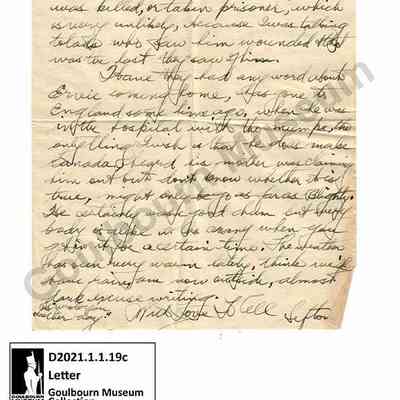 was killed, or taken prisoner, which
is very unlikely, because I was talking
to lads who saw him wounded that
was the last they saw of him.
Have they had any word about
Ernie coming home, has gone to
England some time ago, when he was
in the hospital with the mumps, the
only thing I wish is that he does make
Canada, I heard his mother was claiming
him out but don't know whether it is
true, might only be go as far as Blighty.
I've certainly good chum but every
body is alike in the army when you
in it for a certain time. The weather
has been very warm lately, think we'll
have rain, am now outside, almost
dark excuse writing.
another day". With Love to all
Sifton
Goulbourn Museum
D2021.1.1.19c
Letter
Goulbourn Museum
Collection
GOULBOURN
MUSEUM